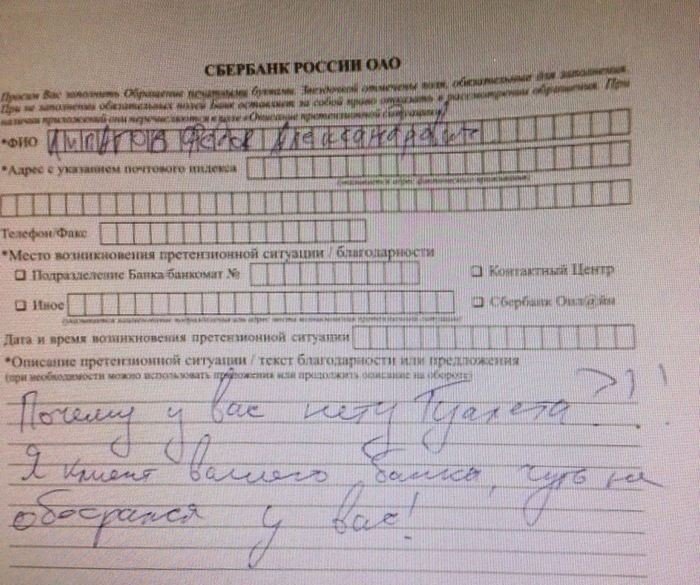 СБЕРБАНК РОССИИ ОАО
Просим Вас заполнить Обращение печатными буквами. Звездочкой отмечены поля, обязательные для заполнения.
При не заполнении обязательных полей Банк оставляет за собой право отказать в рассмотрении обращения. При
наличии приложений они перечисляются в поле «Описание претензионной ситуации»
*ФИО Александрович
*Адрес с указанием почтового индекса
(указывается адрес фактического проживания)
Телефон/Факс
*Место возникновения претензионной ситуации / благодарности
Подразделение Банка/банкомат № Контактный Центр
Иное Сбербанк Онл@йн
(указывается наименование подразделения или адрес места возникновения претензионной ситуации)
Дата и время возникновения претензионной ситуации
*Описание претензионной ситуации / текст благодарности или предложения
(при необходимости можно использовать приложения или продолжить описание на обороте)
Почему у вас нету Туалета ?!!
Я клиент вашего банка, чуть не
обосрался у вас!